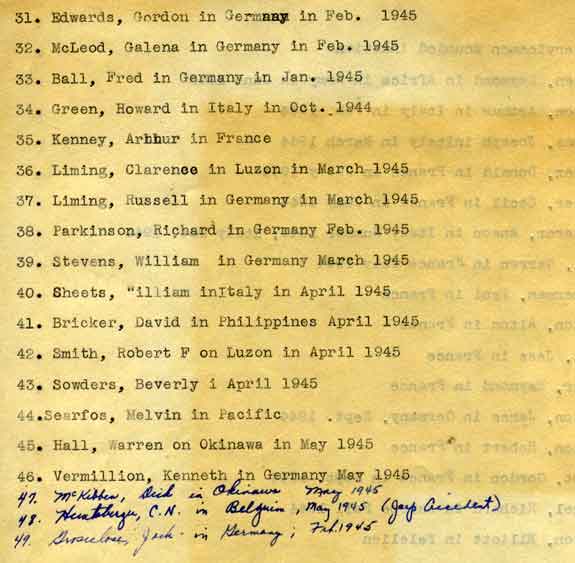 31. Edwards, Gordon in Germany in Feb. 1945
32. McLeod, Galena in Germany in Feb. 1945
33. Ball, Fred in Germany in Jan. 1945
34. Green, Howard in Italy in Oct. 1944
35. Kenney, Arthur in France
36. Liming, Clarence in Luzon in March 1945
37. Liming, Russell in Germany in March 1945
38. Parkinson, Richard in Germany Feb. 1945
39. Stevens, William in Germany March 1945
40. Sheets, "illiam inItaly in April 1945
41. Bricker, David in Philippines April 1945
42. Smith, Robert F on Luzon in April 1945
43. Sowders, Beverly i April 1945
44.Searfos, Melvin in Pacific
45. Hall, Warren on Okinawa in May 1945
46. Vermillion, Kenneth in Germany May 1945
47. McKibben, Dick in Okinawa May 1945
48. C.N. in Belgium, May 1945 (Jeep Accident)
49. Jack - in Germany; Feb. 1945